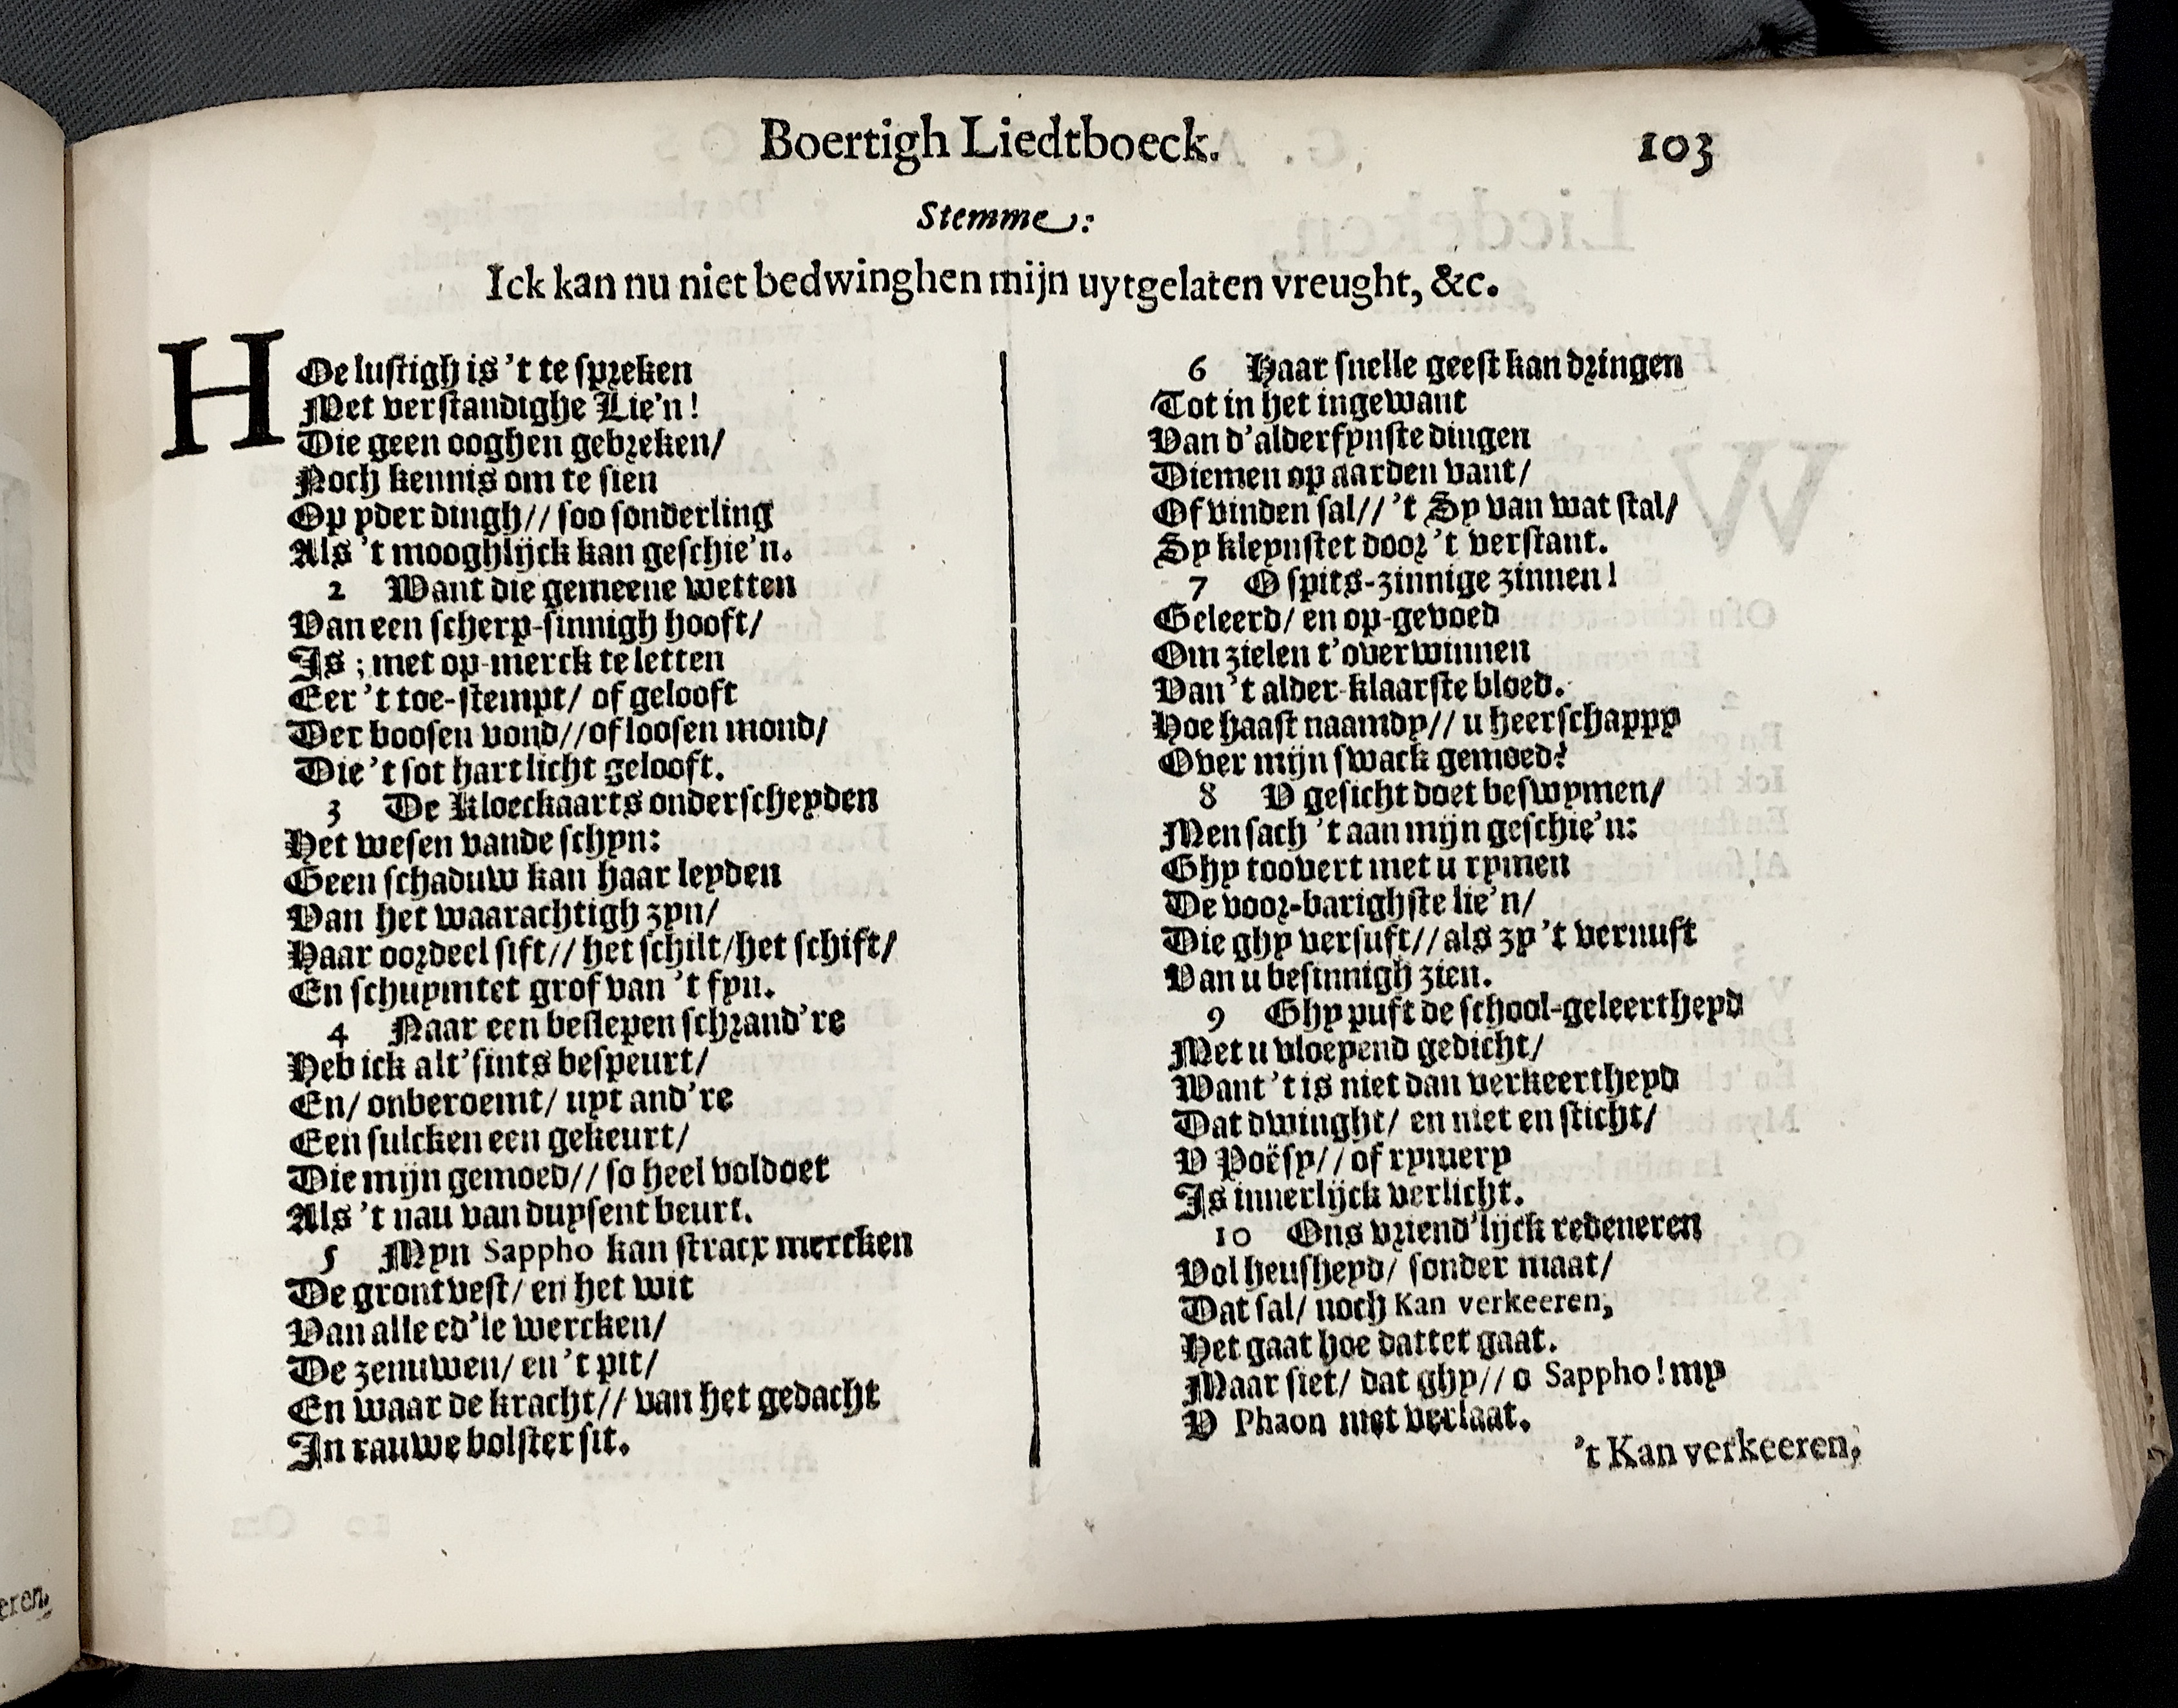 Boertigh Liedtboeck. 103
Stemme:
Ick kan nu niet bedwinghen mijn uytgelaten vreught, &c.
HOe lustigh is 't te spreken
Met verstandighe Lie'n!
Die geen ooghen gebreken/
Noch kennis om te sien
Op yder dingh// soo sonderling
Als 't mooghlijck kan geschie'n.
2 Want die gemeene wetten
Van een scherp-sinnigh hooft/
Is ; met op-merck te letten
Eer 't toe-stempt/ of gelooft
Der boosen vond// of loosen mond/
Die 't sot hart licht gelooft.
3 De Kloeckaarts onderscheyden
Het wesen vande schyn:
Geen schaduw kan haar leyden
Van het waarachtigh zyn/
Haar oordeel sift// het schilt/ het schift/
En schuymtet grof van 't fyn.
4 Naar een beslepen schrand're
Heb ick alt'sints bespeurt/
En/ onberoemt/ uyt and're
Een sulcken een gekeurt/
Die mijn gemoed// so heel voldoet
Als 't nau van duysent beurt.
5 Myn Sappho kan stracx mercken
De grontvest/ en het wit
Van alle ed'le wercken/
De zenuwen/ en 't pit/
En waar de kracht// van het gedacht
In rauwe bolster sit.
6 Haar snelle geest kan dringen
Tot in het ingewant
Van d'alderfynste dingen
Diemen op aarden vant/
Of vinden sal// 't Sy van wat stal/
Sy kleynstet door 't verstant.
7 O spits-zinnige zinnen!
Geleerd/ en op-gevoed
Om zielen t'overwinnen
Van 't alder-klaarste bloed.
Hoe haast naamdy// u heerschappy
Over mijn swack gemoed?
8 V gesicht doet beswymen/
Men sach 't aan mijn geschie'n:
Ghy toovert met u rymen
De voor-barighste lie'n/
Die ghy versuft// als zy 't vernuft
Van u besinnigh zien.
9 Ghy puft de school-geleertheyd
Met u vloeyend gedicht/
Want 't is niet dan verkeertheyd
Dat dwinght/ en niet en sticht/
V Poësy// of rymery
Is innerlijck verlicht.
10 Ons vriend'lijck redeneren
Vol heusheyd/ sonder maat/
Dat sal/ noch Kan verkeeren,
Het gaat hoe dattet gaat.
Maar siet/ dat ghy// o Sappho! my
V Phaon niet verlaat.
't Kan verkeeren.
eren.